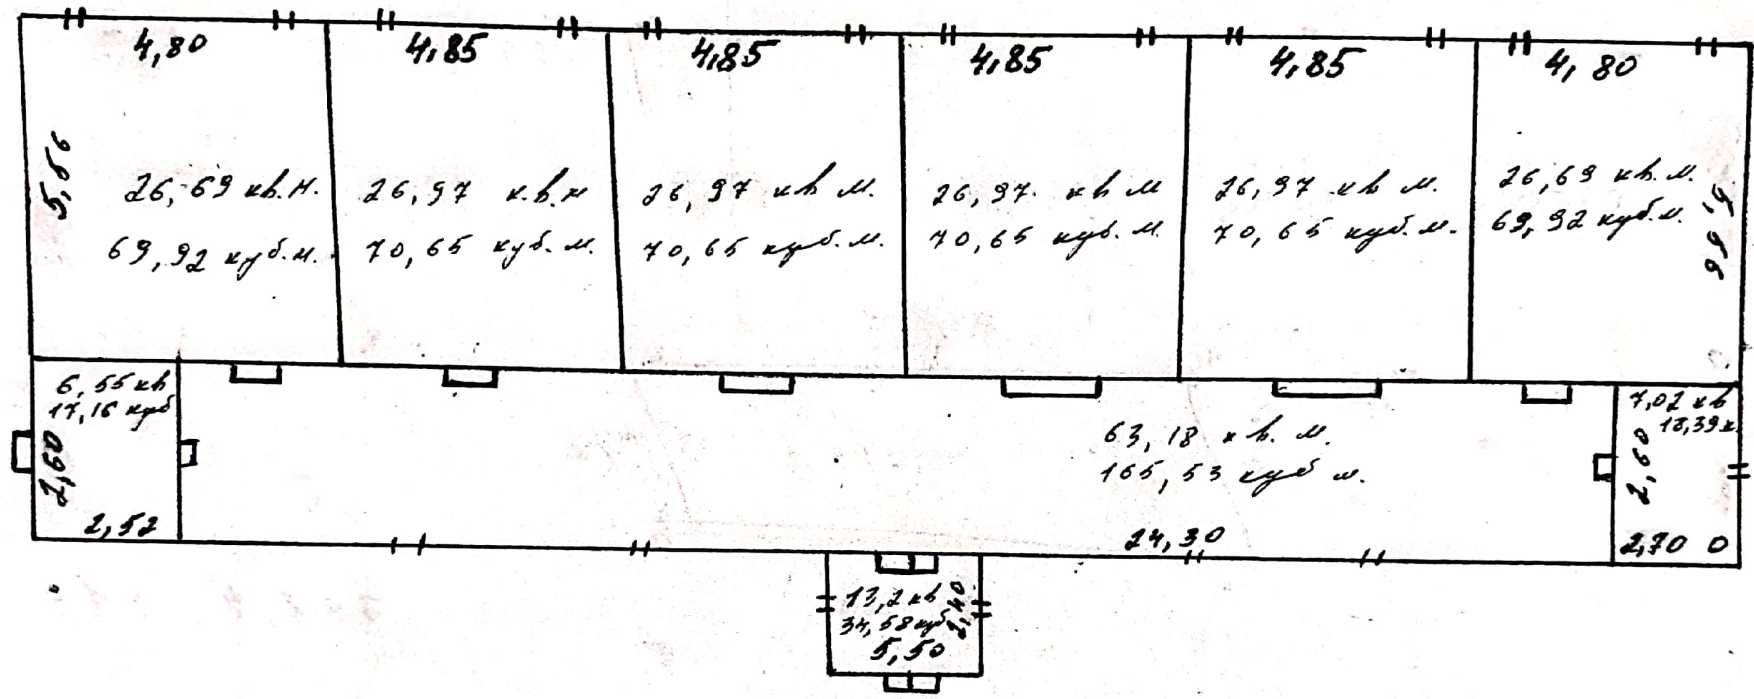 4,80
4,85
4,85
4,85
4,85
4,80
5,56
26,69 кв.м.
69,92 куб.м.
26,97 к.в.м
70,65 куб.м.
26,97 кв м.
70,65 куб.м.
26,97. кв м
70,65 куб.м.
26,97 кв м.
70,65 куб.м.
26,69 кв.м.
69,92 куб.м.
5,56
6,55 кв
17,16 куб
2,60
2,52
63,18 кв. м.
165,53 куб м.
24,30
7,02 кв
18,39 к.
2,60
2,70 0
13,2 кв
34,58 куб
2,40
5,50